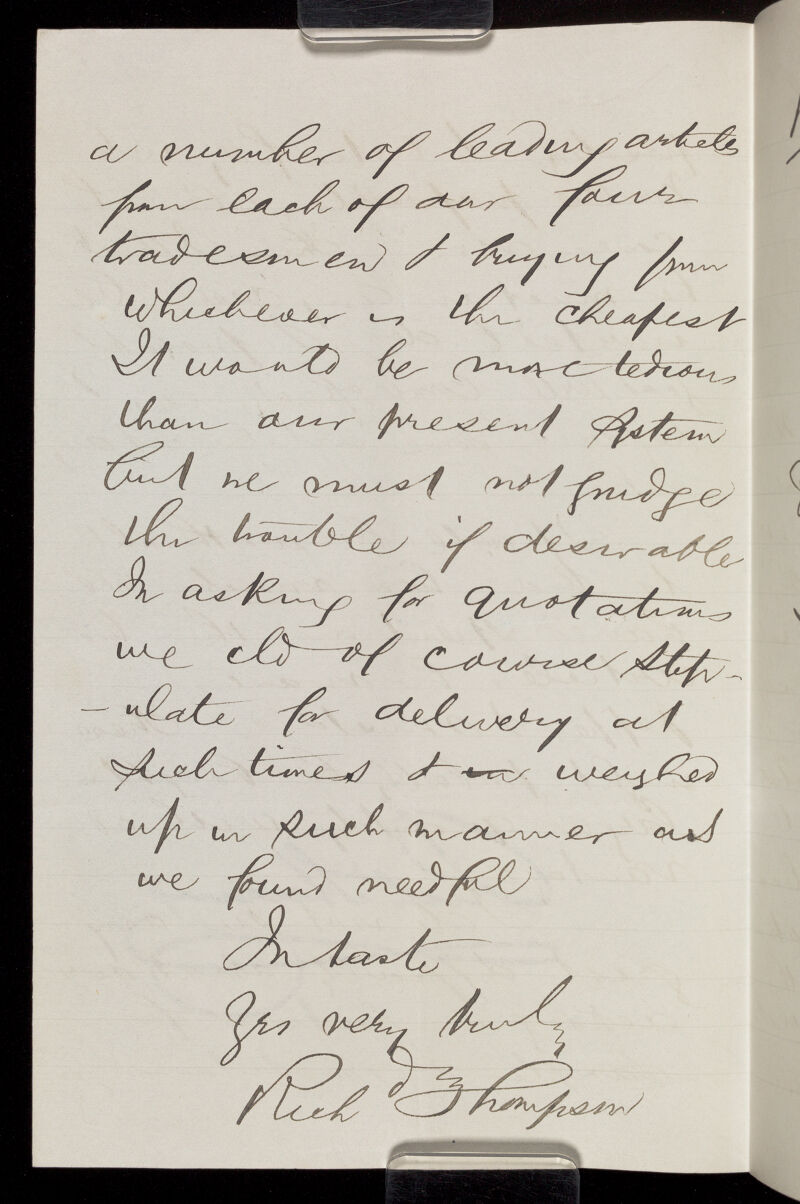 a number of leading articles
from each of our four
tradesmen & buying from
whichever is the cheapest
It would be more tedious
than our present system
but we must not grudge
the trouble if desirable
In asking for quotations
we cld of course stip-
-ulate for delivery at
such times & in weighed
up in such manner as
we found needful
In haste
Yrs very truly
Richd Thompson